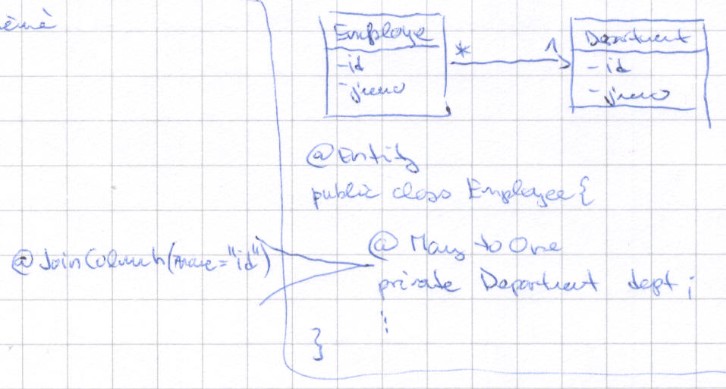 Employe
-id
-jmeno
*
1
Department
-id
-jmeno
@Entity
public class Employee {
@JoinColumn(name="id")
@ManyToOne
private Department dept;
}